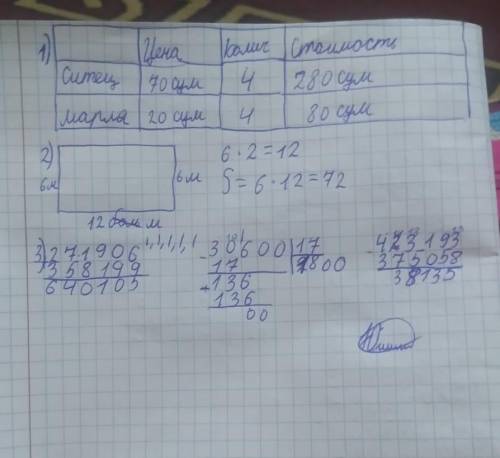 1) Цена Колич Стоимость
Ситец 70 сум 4 280 сум
марля 20 сум 4 80 сум
2) 6 · 2 = 12
6м 6 м S = 6 · 12 = 72
12 м
3) 271906 30600 17 423193
358199 17 1800 375058
640105 136 38135
136
00